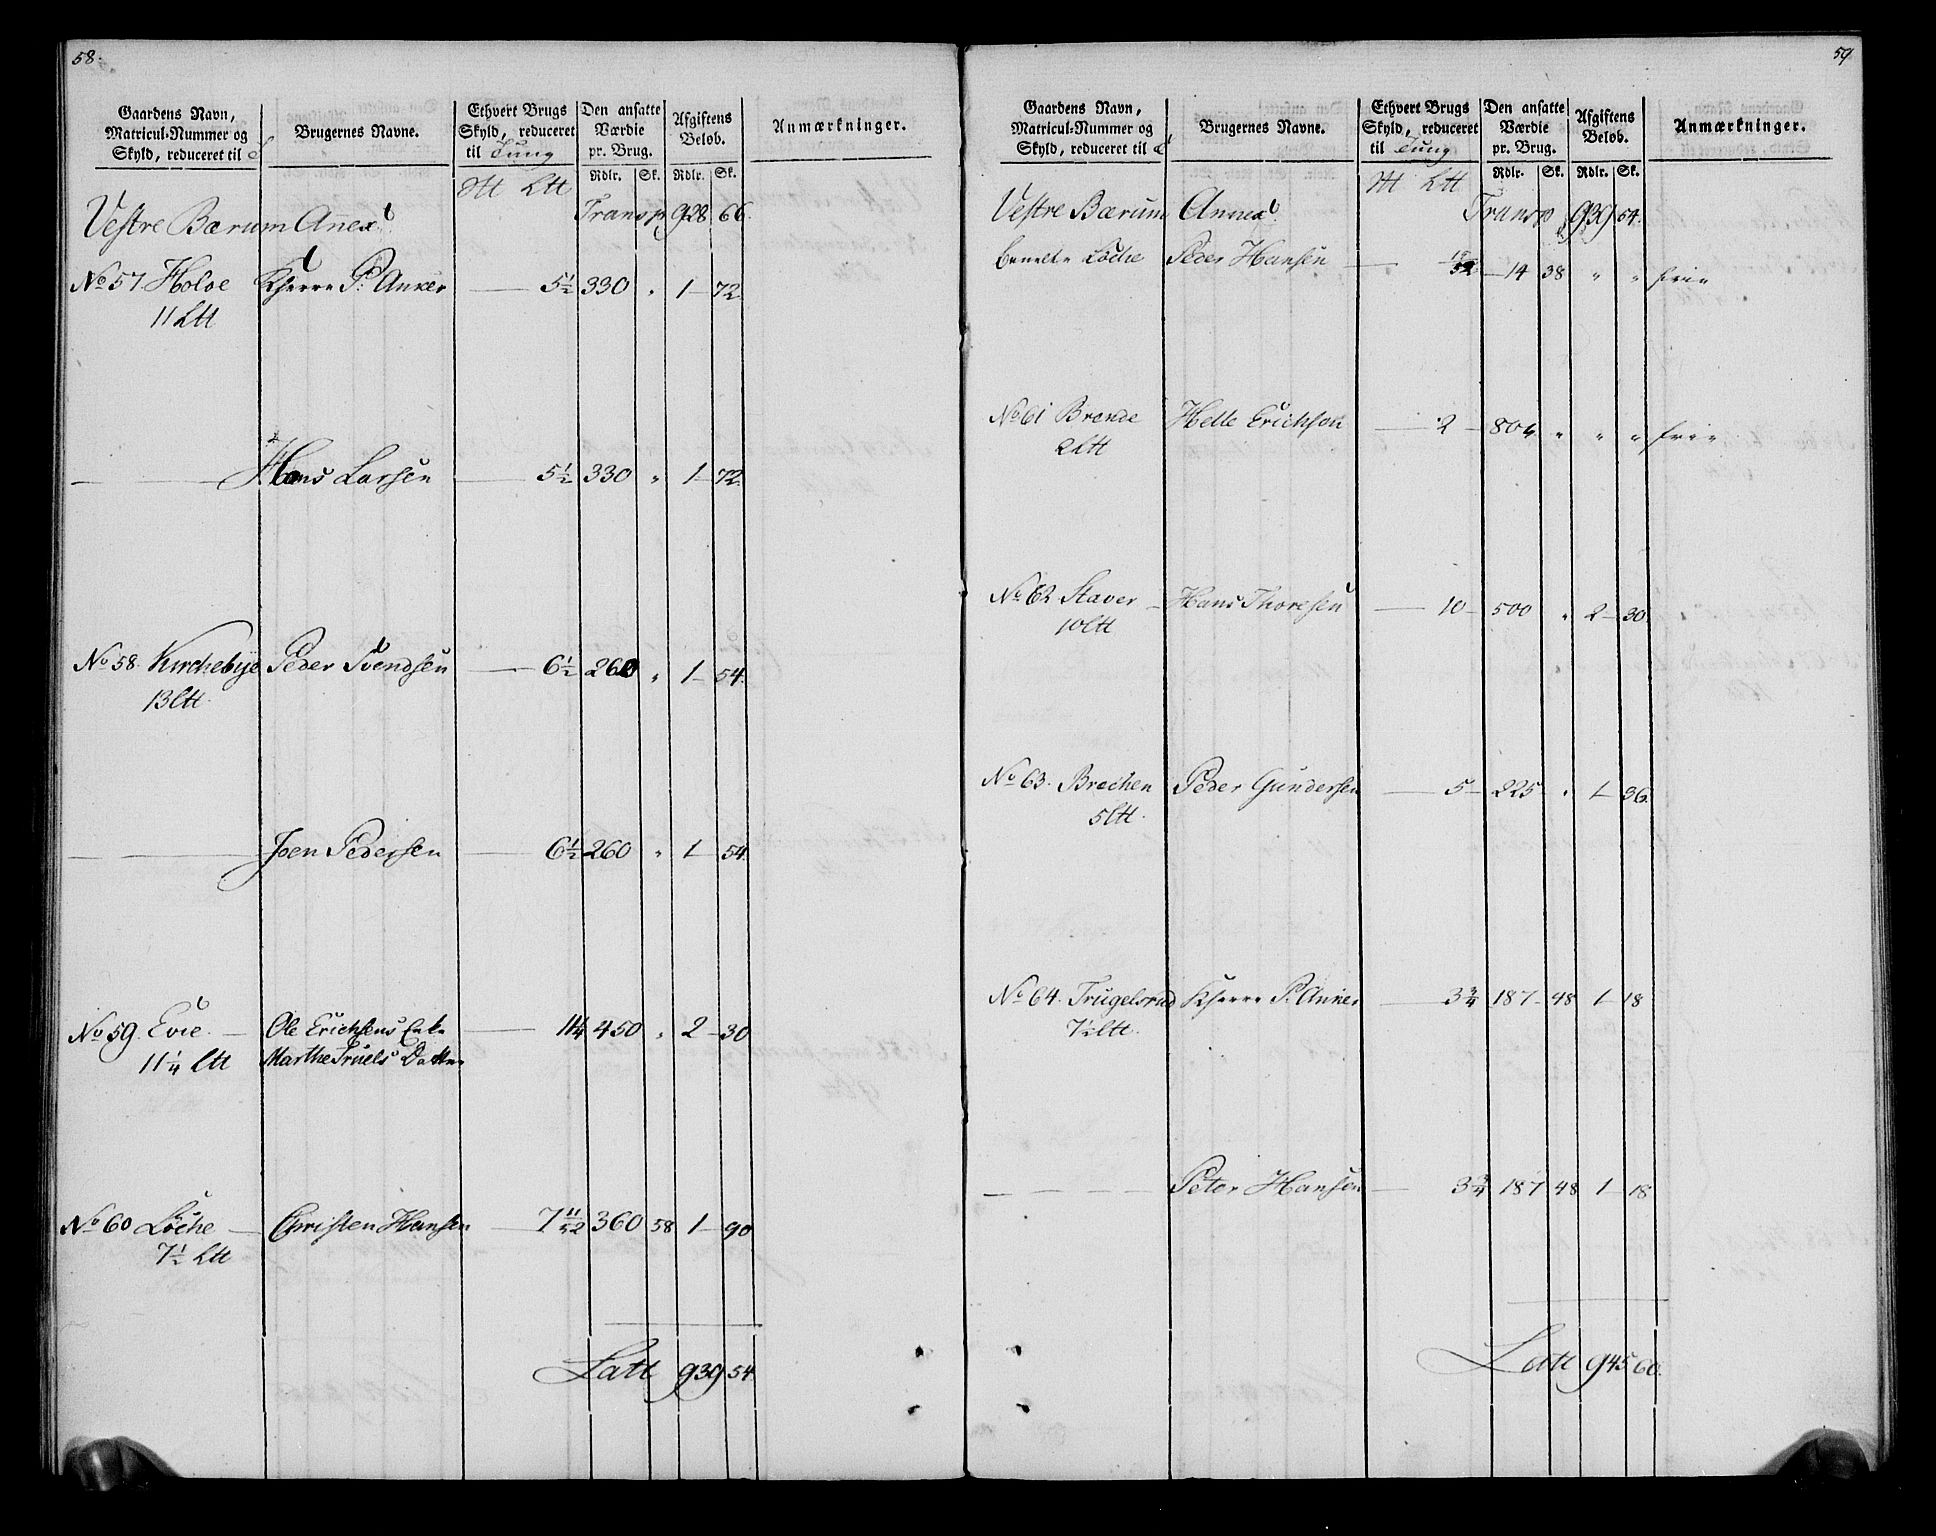 58.
Gaardens Navn, Matricul-Nummer og Skyld, reduceret til
Brugernes Navne.
Ethvert Brugs Skyld, reduceret til Tung
Den ansatte Værdie pr. Brug.
Afgiftens Beløb.
Anmærkninger.
Rdlr. Sk. Rdlr. Sk.
Ltt
Vestre Bærum Annex Transp 928 66.
No 57. Holve P: Anker 5½ 330 " 1 72.
11 Ltt
Hans Larsen 5½ 330 " 1 72.
No 58. Kirchebye Peder Svendsen 6½ 260 " 1 54.
13 Ltt.
Joen Pedersen 6½ 260 " 1 54.
No 59. Evie Ole Erichsens Enke 11¼ 450 " 2 30
11¼ Ltt Marthe Truels Datter
No 60 Løche Christen Hansen 7 11/52 360 58 1 90
7½ Ltt
Latt 939 54.
59
Gaardens Navn, Matricul-Nummer og Skyld, reduceret til
Brugernes Navne.
Ethvert Brugs Skyld, reduceret til Tung
Den ansatte Værdie pr. Brug.
Afgiftens Beløb.
Anmærkninger.
Rdlr. Sk. Rdlr. Sk.
Ltt
Vestre Bærum Annex Transp 939 54.
Løche Peder Hansen 14 38 " " frie
No 61 Brende Helle Erichsen 2 80 " " " frie
2 Ltt
No 62 Staver Hans Thoresen 10 500 " 2 30
10 Ltt
No 63. Brechen Peder Gundersen 5 225 " 1 36.
5 Ltt.
No 64. Trugelsrud P: Anker 3¾ 187 48 1 18
7½ Ltt.
Peter Hansen 3¾ 187 48 1 18
Latt 945 60.